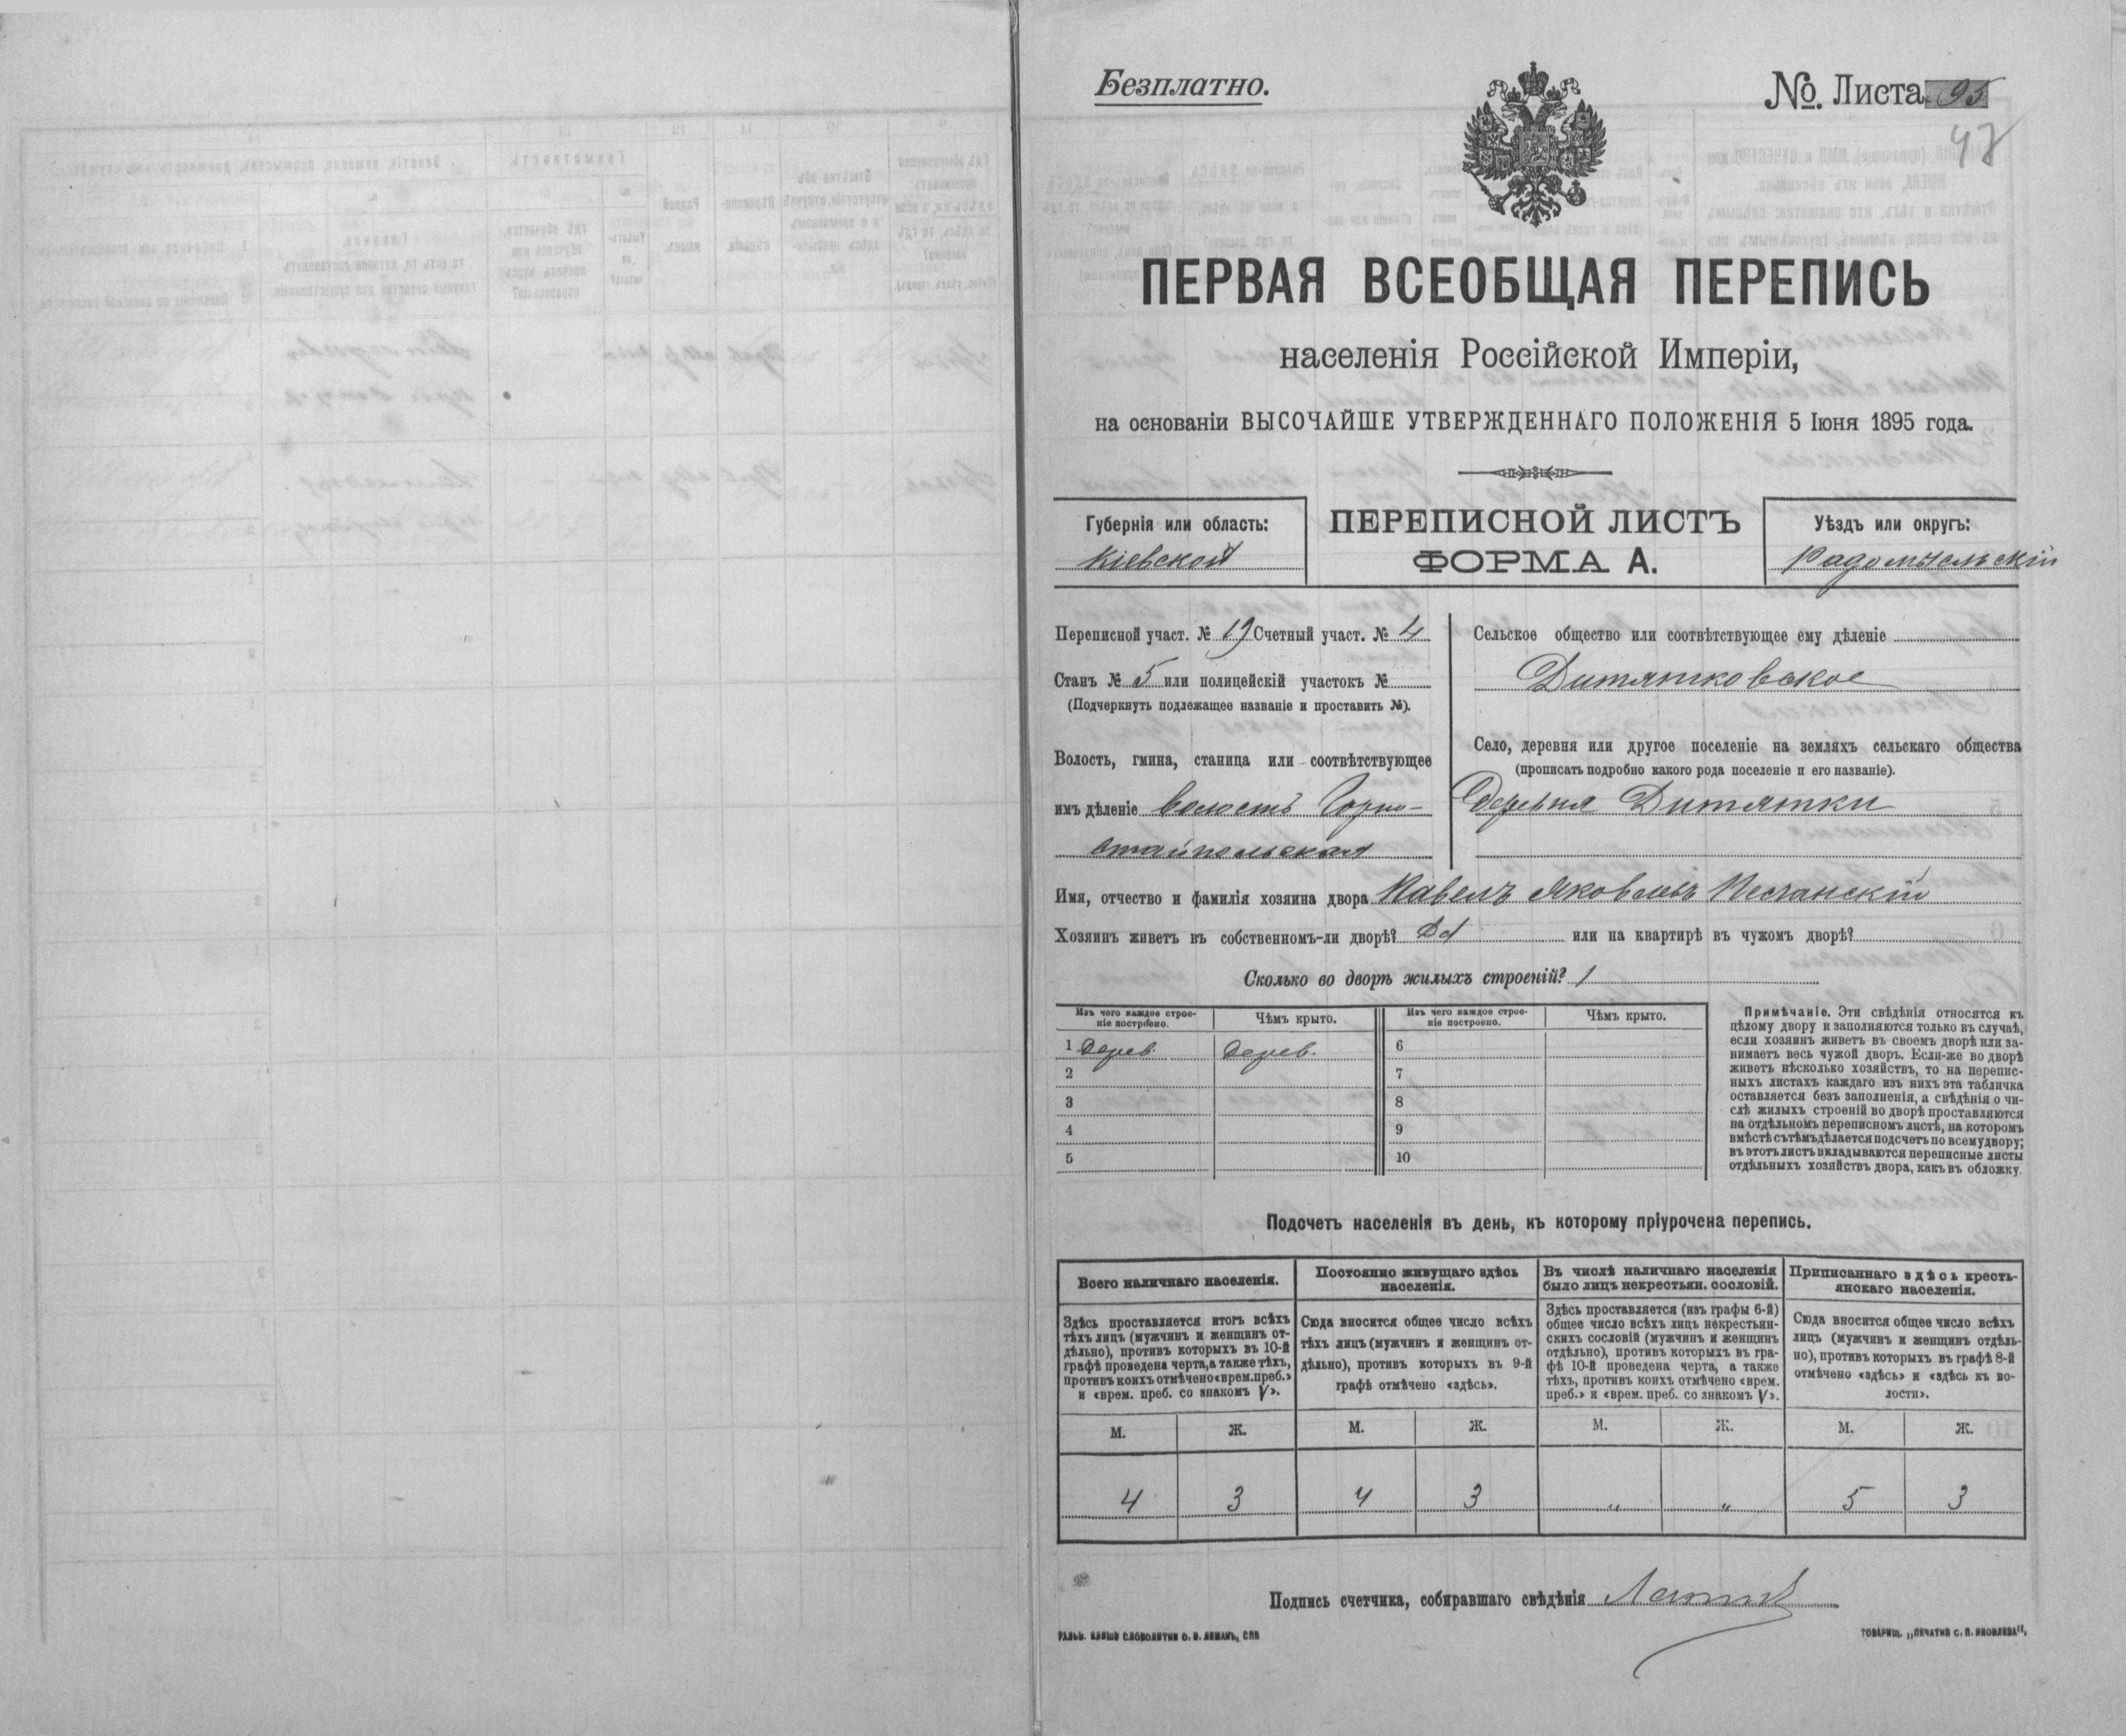 Безплатно.
№. Листа 95
47
ПЕРВАЯ ВСЕОБЩАЯ ПЕРЕПИСЬ
населенія Россійской Имперіи,
на основаніи ВЫСОЧАЙШЕ УТВЕРЖДЕННАГО ПОЛОЖЕНІЯ 5 Іюня 1895 года.
Губернія или область:
Кіевской
ПЕРЕПИСНОЙ ЛИСТЪ
ФОРМА А.
Уѣздъ или округъ:
Радомысльскій
Переписной участ. № 19 Счетный участ. № 4
Станъ № 5 или полицейскій участокъ №
(Подчеркнуть подлежащее названіе и проставить №).
Волость, гмина, станица или соотвѣтствующее
имъ дѣленіе волость Горно-
стайпольская
Сельское общество или соотвѣтствующее ему дѣленіе
Дитятковское
Село, деревня или другое поселеніе на земляхъ сельскаго общества
(прописать подробно какого рода поселеніе и его названіе).
Деревня Дитятки
Имя, отчество и фамилія хозяина двора Павелъ Яковлевъ Песчанскій
Хозяинъ живетъ въ собственномъ-ли дворѣ? Да или на квартирѣ въ чужомъ дворѣ?
Сколько во дворѣ жилыхъ строеній? 1
Изъ чего каждое строе-
ніе построено.
Чѣмъ крыто.
Изъ чего каждое строе-
ніе построено.
Чѣмъ крыто.
1 Дерев. Дерев. 6
2 7
3 8
4 9
5 10
Примѣчаніе. Эти свѣдѣнія относятся къ
цѣлому двору и заполняются только въ случаѣ,
если хозяинъ живетъ въ своемъ дворѣ или за-
нимаетъ весь чужой дворъ. Если-же во дворѣ
живетъ нѣсколько хозяйствъ, то на перепис-
ныхъ листахъ каждаго изъ нихъ эта табличка
оставляется безъ заполненія, а свѣдѣнія о чи-
слѣ жилыхъ строеній во дворѣ проставляются
на отдѣльномъ переписномъ листѣ, на которомъ
вмѣстѣ съ тѣмъ дѣлается подсчетъ по всему двору;
въ этотъ листъ вкладываются переписные листы
отдѣльныхъ хозяйствъ двора, какъ въ обложку.
Подсчетъ населенія въ день, къ которому пріурочена перепись.
Всего наличнаго населенія.
Здѣсь проставляется итогъ всѣхъ
тѣхъ лицъ (мужчинъ и женщинъ от-
дѣльно), противъ которыхъ въ 10-й
графѣ проведена черта, а также тѣхъ,
противъ коихъ отмѣчено «врем. преб.»
и «врем. преб. со знакомъ V».
Постоянно живущаго здѣсь
населенія.
Сюда вносится общее число всѣхъ
тѣхъ лицъ (мужчинъ и женщинъ от-
дѣльно), противъ которыхъ въ 9-й
графѣ отмѣчено «здѣсь».
Въ числѣ наличнаго населенія
было лицъ некрестьян. сословій.
Здѣсь проставляется (изъ графы 6-й)
общее число всѣхъ лицъ некрестьян-
скихъ сословій (мужчинъ и женщинъ
отдѣльно), противъ которыхъ въ гра-
фѣ 10-й проведена черта, а также
тѣхъ, противъ коихъ отмѣчено «врем.
преб.» и «врем. преб. со знакомъ V».
Приписаннаго здѣсь кресть-
янскаго населенія.
Сюда вносится общее число всѣхъ
лицъ (мужчинъ и женщинъ отдѣль-
но), противъ которыхъ въ графѣ 8-й
отмѣчено «здѣсь» и «здѣсь къ во-
лости».
М. Ж. М. Ж. М. Ж. М. Ж.
4 3 4 3 „ „ 5 3
Подпись счетчика, собиравшаго свѣдѣнія
ГАЛЬВ. КЛИШЕ СЛОВОЛИТНИ О. И. ЛЕМАНЪ, СПБ
ТОВАРИЩ. „ПЕЧАТНЯ С. П. ЯКОВЛЕВА",